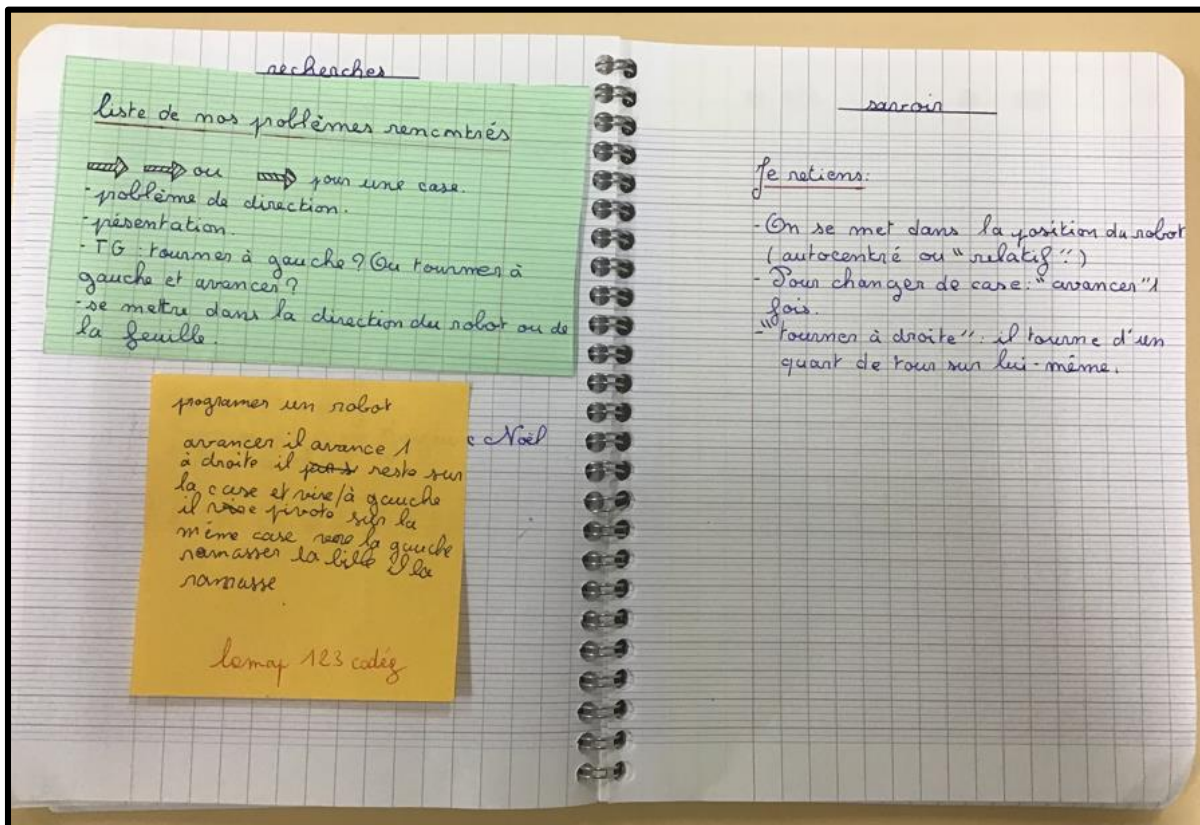 recherches
liste de nos problèmes rencontrés
ou pour une case.
- problème de direction.
- présentation.
- TG : tourner à gauche ? Ou tourner à
gauche et avancer ?
- se mettre dans la direction du robot ou de
la feuille.
programer un robot
avancer il avance 1
à droite il reste sur
la case et vire/à gauche
il pivote sur la
même case vere la gauche
ramasser la bille il la
ramasse
lamap 123 codéz
Noël
savoir
Je retiens:
- On se met dans la position du robot
(autocentré ou "relatif":)
- Pour changer de case: "avancer" 1
fois.
- "tourner à droite": il tourne d'un
quart de tour sur lui-même.